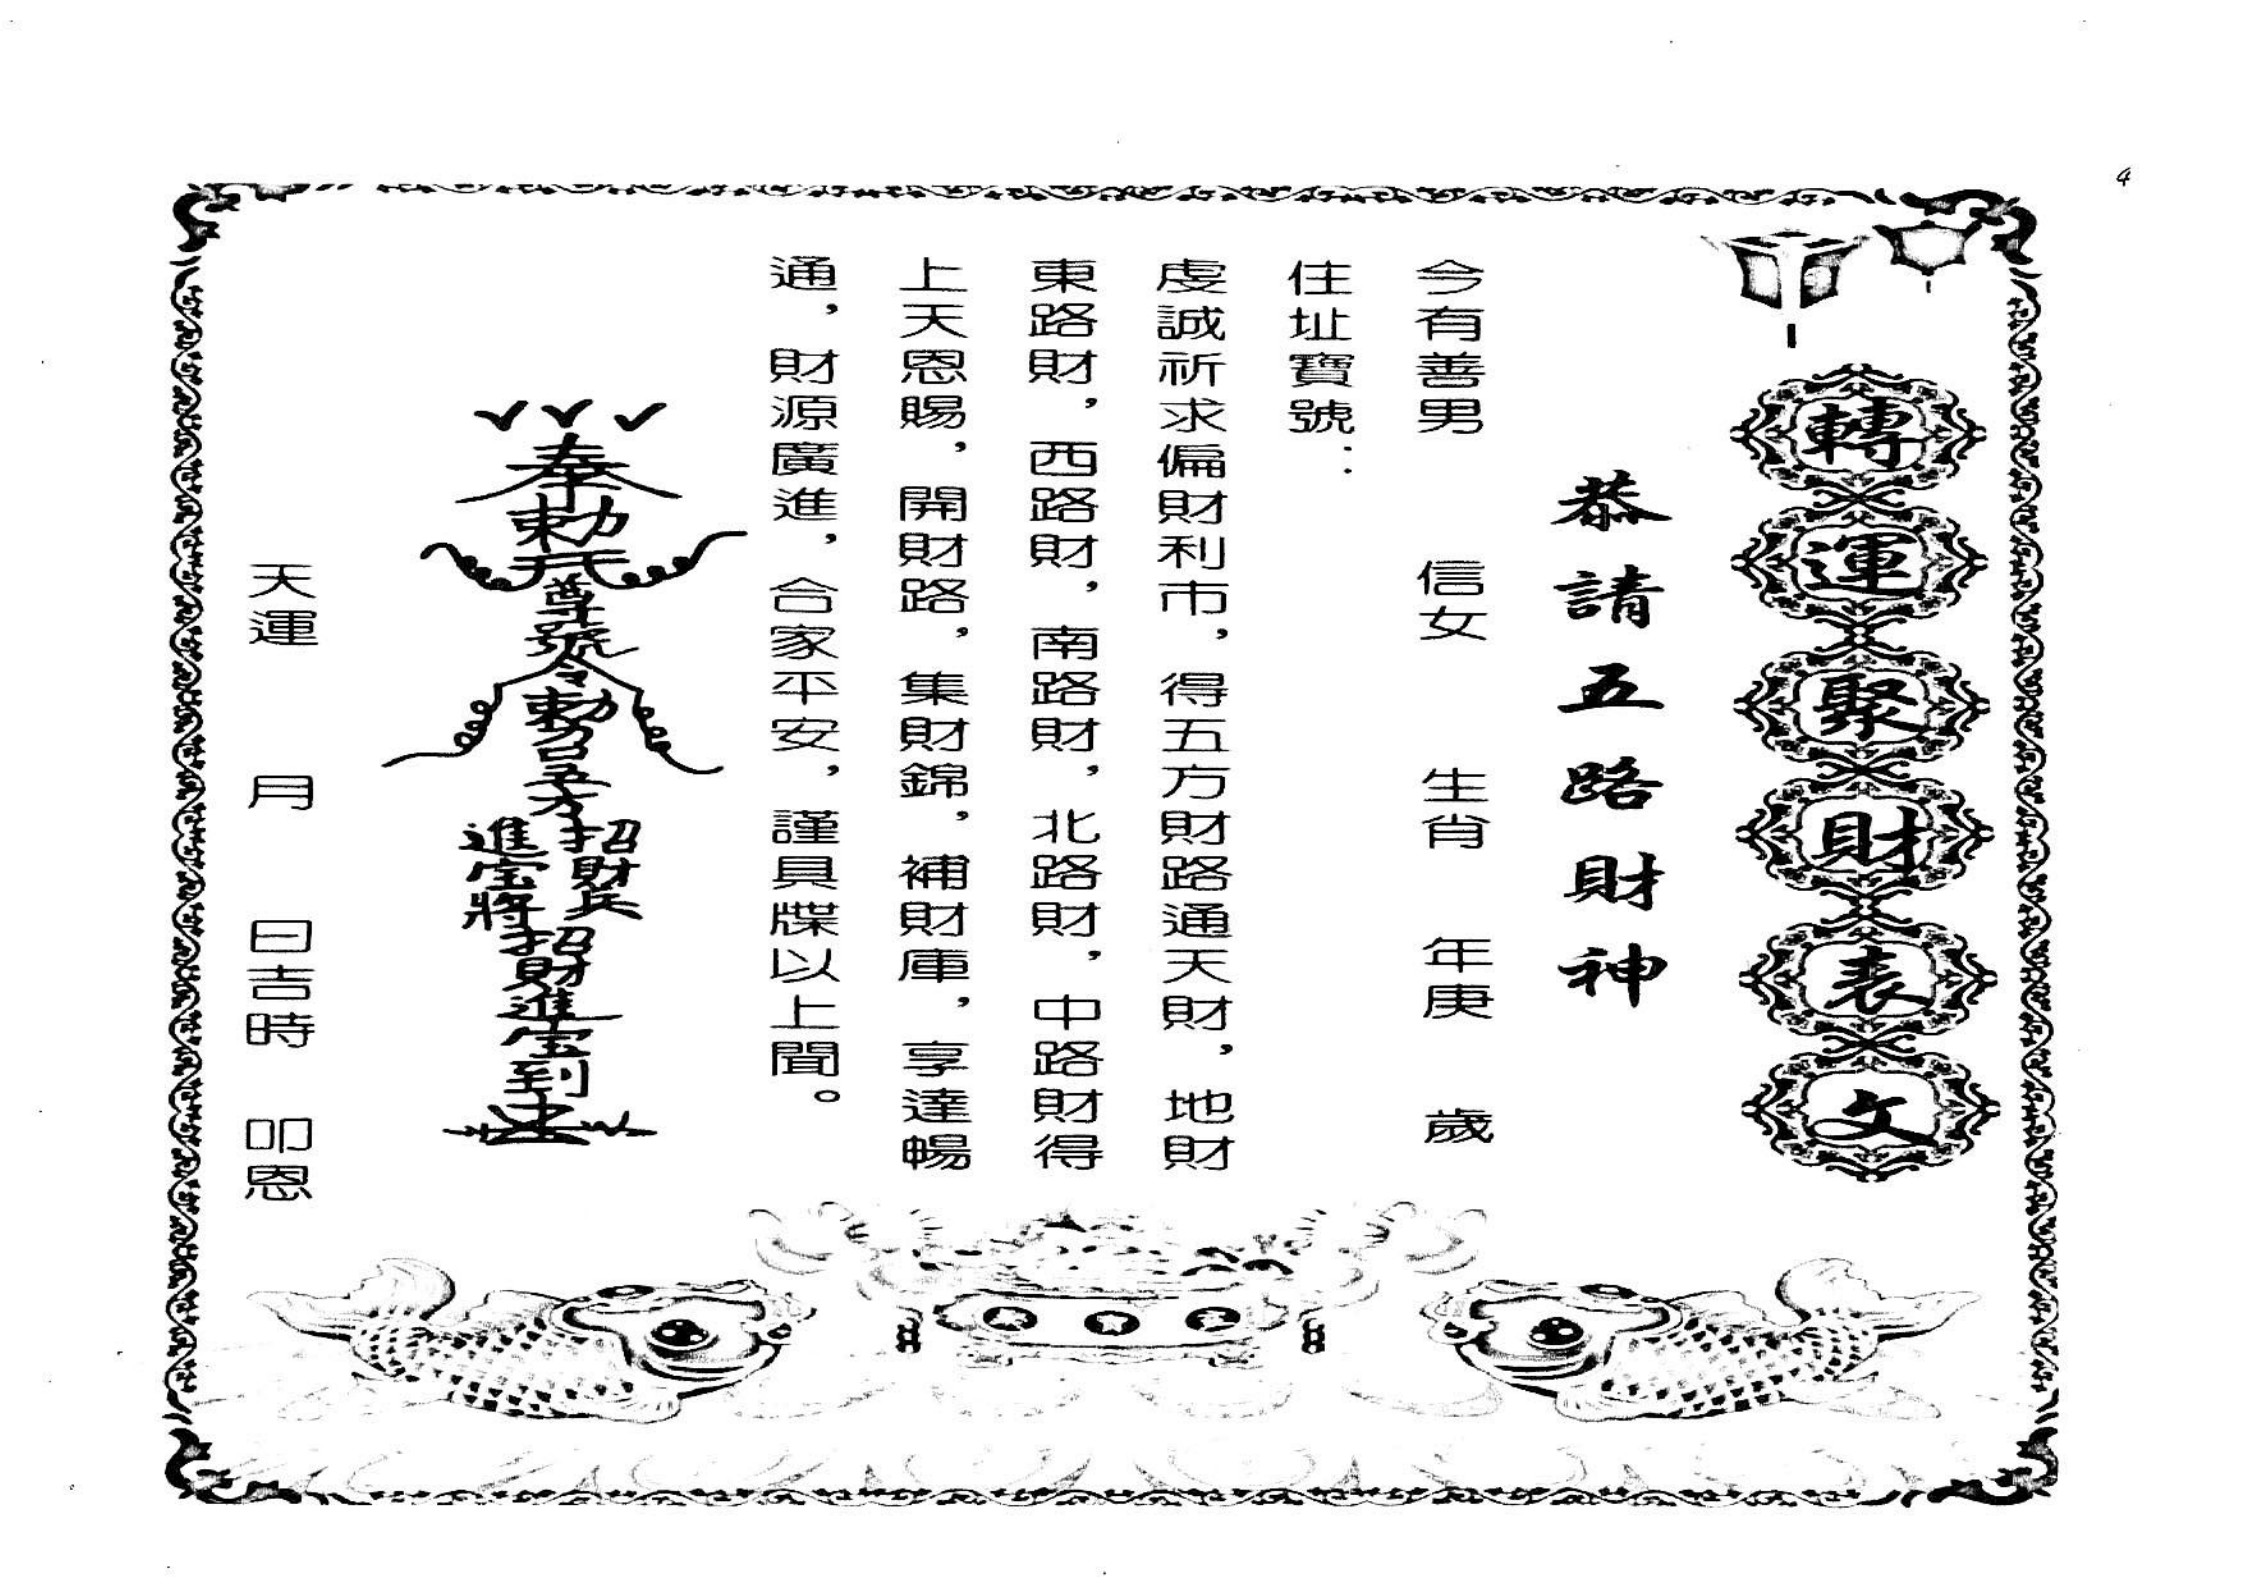 4
轉運聚財表文
恭請五路財神
今有善男　信女　生肖　年庚　歲
住址寶號：
虔誠祈求偏財利市，得五方財路通天財，地財
東路財，西路財，南路財，北路財，中路財得
上天恩賜，開財路，集財錦，補財庫，享達暢
通，財源廣進，合家平安，謹具牒以上聞。
奉勅
尊號令
勅召五方
招財兵
進宝將
招財進宝到
天運　月　日吉時　叩恩